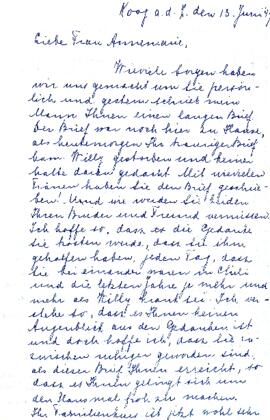 Koog a.d. Z. den 13. Juni 4
Liebe Frau Annemarie,
Wieviele Sorgen haben
wir uns gemacht um Sie persön-
lich und gestern schrieb mein
Mann Ihnen einen langen Brief.
Der Brief war noch hier zu Hause,
als heutemorgen Ihr trauriger Brief
kam. Willy gestorben und keiner
hatte daran gedacht. Mit wievielen
Tränen haben Sie den Brief geschrie-
ben! Und wie werden Sie beiden
Ihren Bruder und Freund vermissen.
Ich hoffe so, dass es die Gedanke
Sie trösten werde, dass Sie ihm
geholfen haben, jeden Tag, dass
Sie bei einander waren in Chili
und die letzten Jahre je mehr und
mehr als Willy krank sei. Ich ver-
stehe so, dass es Ihnen keinen
Augenblick aus den Gedanken ist
und doch hoffe ich, dass Sie in-
zwischen ruhiger geworden sind,
als dieser Brief Ihnen erreicht, so
dass es Ihnen gelingt sich um
den Hansmal froh zu machen.
Ihr Familienkreis ist jetzt wohl sehr